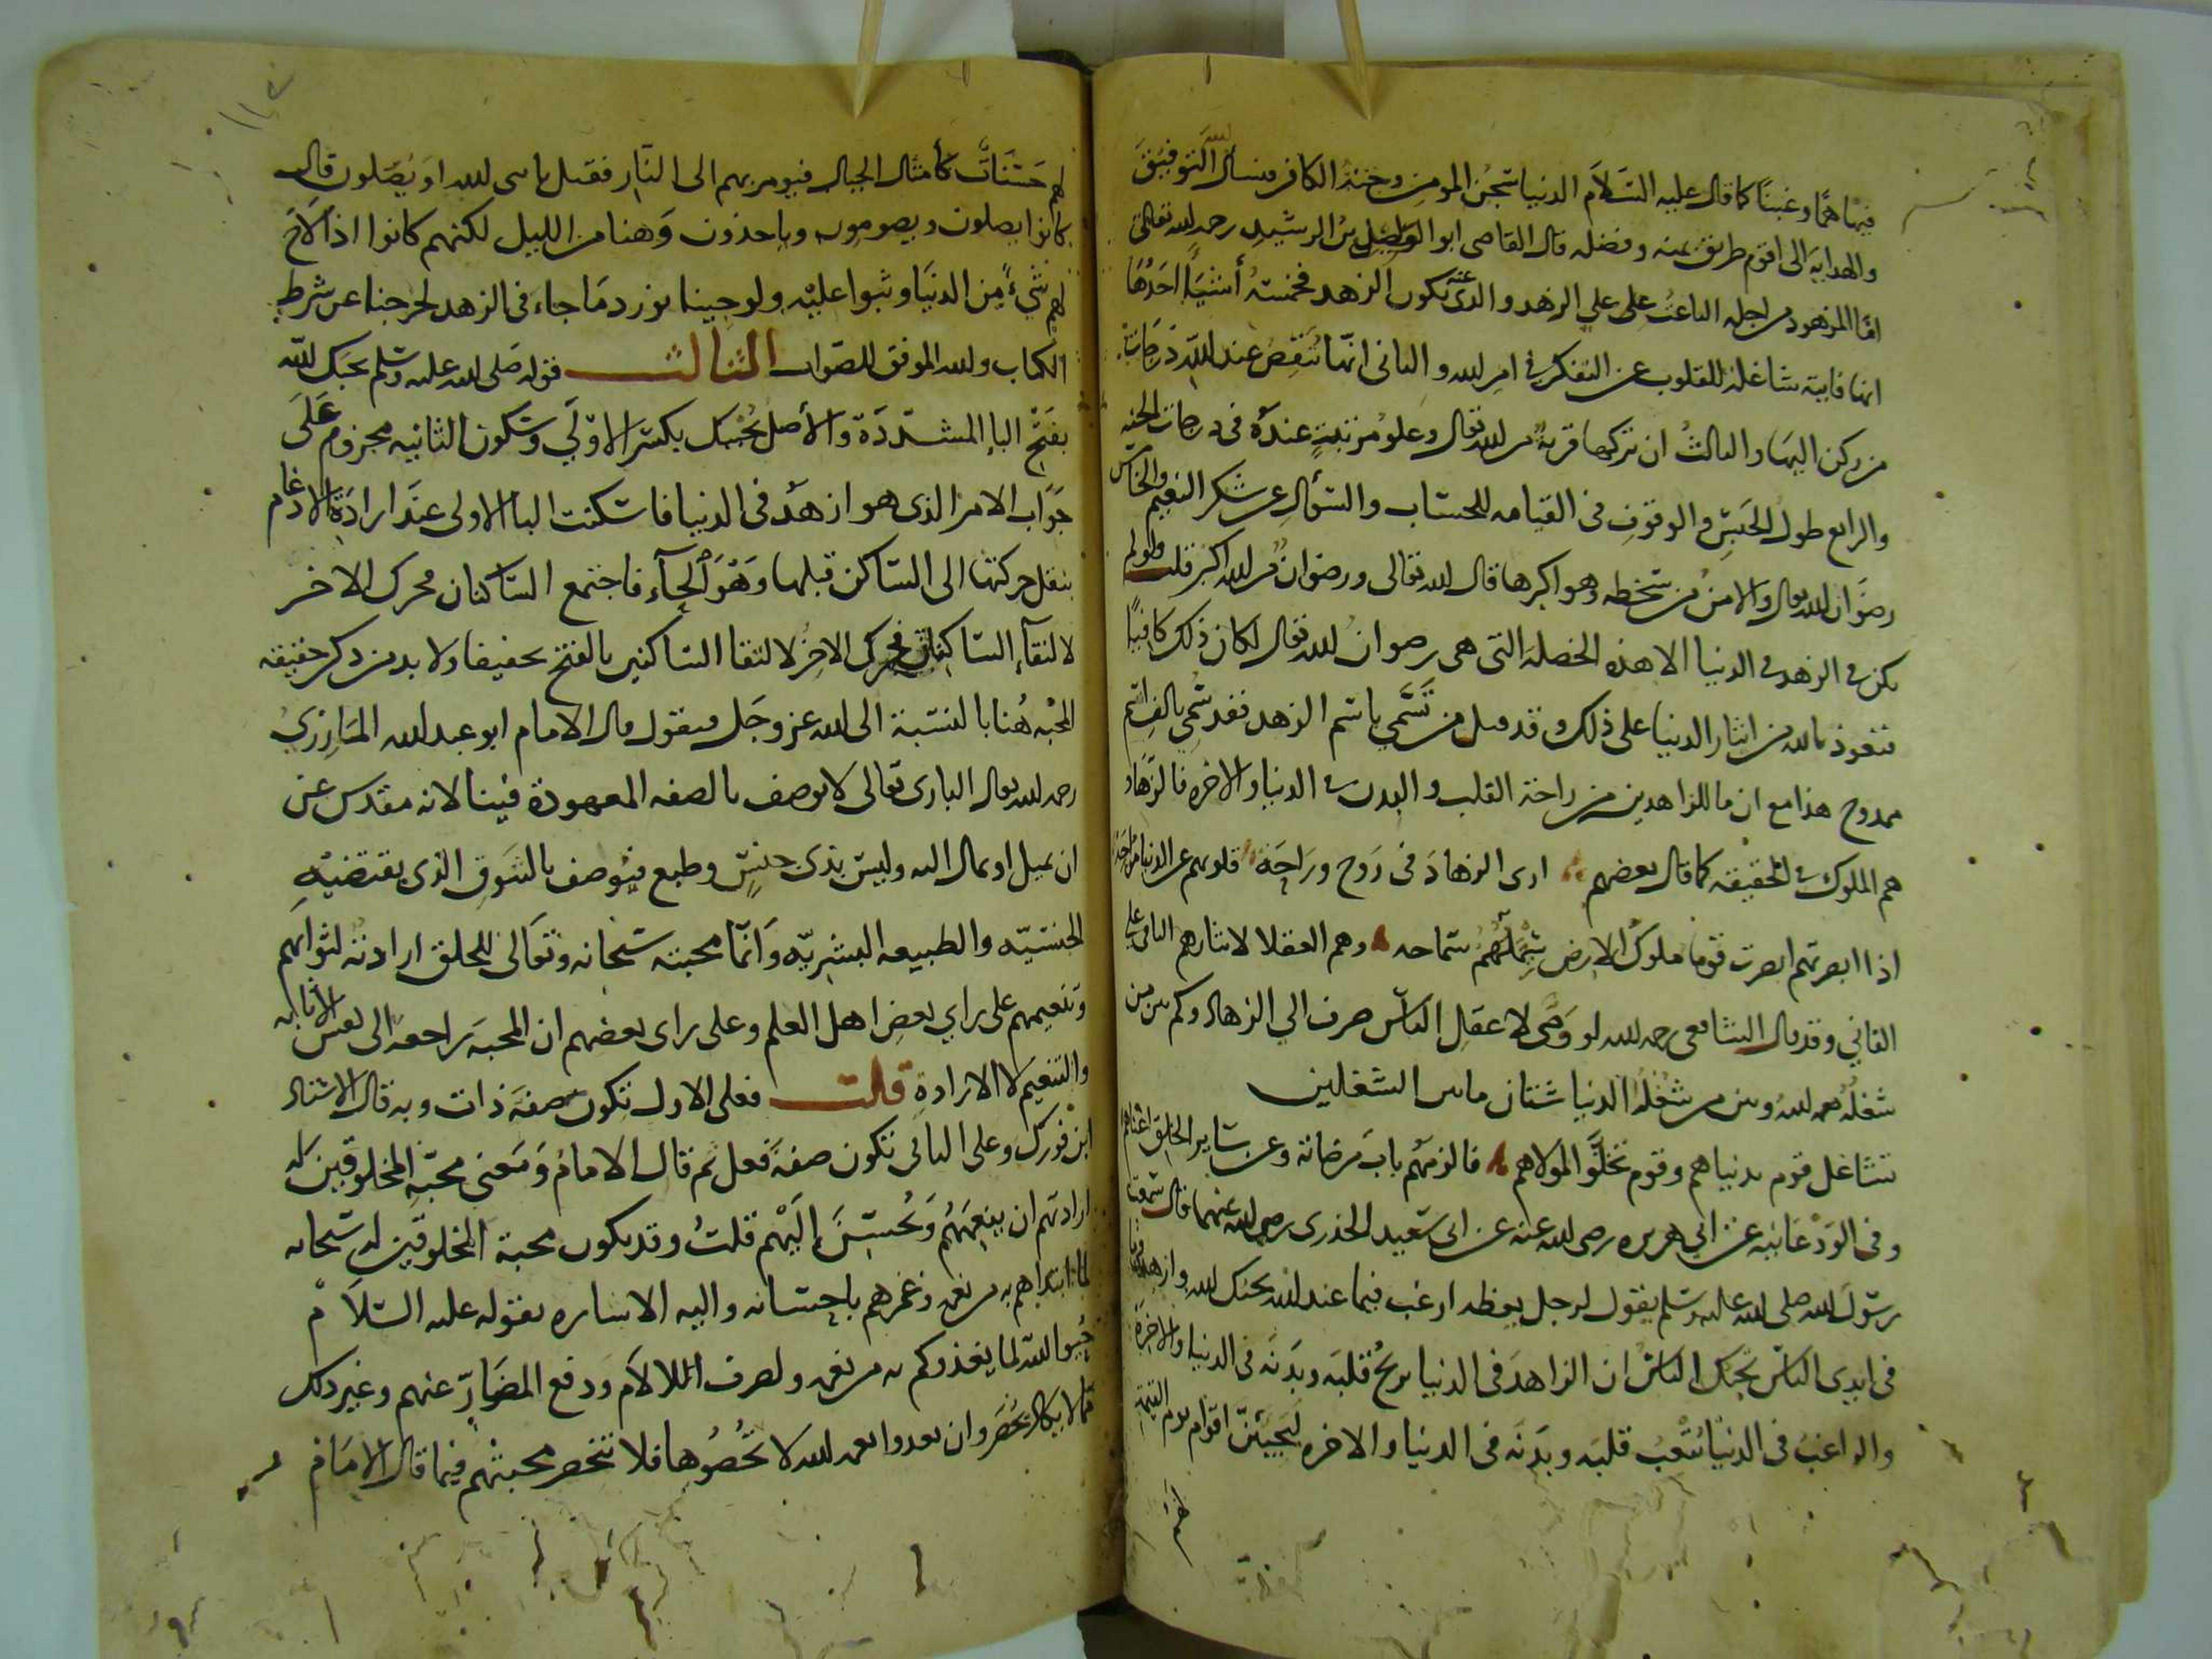 فيها همًا وغبنًا كما قال عليه السَّلاَم الدنيا سجن المومن وجنة الكافر فنسأل الله التوفيق
والهداية الى اقوم طريق بمنه وفضله قال القاضى ابو الوليد بن الرشيد رحمه الله تعالى
امّا المزهود من اجله الباعث على علي الزهد والذى عنه يكون الزهد فخمسة أشيَأ احَدُهَا
انها فانية شاغلة للقلوب عن التفكر فى امر الله والثانى انها تنقص عند الله درجات
من ركن اليها والثالث ان تركها قربة من الله تعالى وعلو مرتبة عنده فى درجات الجنه
والرابع طول الحَبسِ والوقوف فى القيامه للحساب والسؤال عن شكر النعيم والخامس
رضوَان الله تعالى والامن من سخطه وهو اكبرها قال الله تعالى ورضوان من الله اكبر قلت ولو لم
يكن فى الزهد فى الدنيا الا هذه الخصلة التى هى رضوان الله تعالى لكان ذلك كافيًا
فنعوذ بالله من ايثار الدنيا على ذلك وقد قيل من تَسَمَّي باسْم الزهد فقد سُمّي بالف اسم
ممدوح هذا مع ان ما للزاهدين من راحة القلب والبدن فى الدنيا والاخره فالزهاد
هم الملوك فى الحقيقه كما قال بعضهم ارى الزهادَ فى رَوح ورَاحَة قلوبهم عن الدنيا مزاحه
اذا ابصرتهم ابصرت قوما ملوك الارض شِيْمَتُهُم سماحه وهم العقلا لايثارهم الباقى على
الفاني وقد قال الشافعى رحمه الله لو وَصَّى لاعقل الناس صرف الي الزهاد وكم بين من
شغلُه همه لله وبين من شغلهُ الدنيا شتان ما بين الشغلين
تشاغل قوم بدنياهم وقوم تخلَّوا لمولاهم فالزمهُم بابَ مَرضاته وعن سَاير الخلق اغناهم
وفى الوَدْعَانيه عن ابي هريره رضى الله عنه عن ابى سَعيد الخدرى رضى الله عنهما قال سمعت
رسُولَ الله صلى الله عليه وسلم يقول لرجل يعظه ارغب فيما عند الله يحبك الله وازهد فيما
فى ايدى الناس يحبك الناسُ ان الزاهدَ فى الدنيا يريحُ قلبَه وبدَنَه فى الدنيا والاخِرَة
والراغبُ فى الدنيَا يُتْعِبُ قلبَه وبدَنَه فى الدنيا والاخره ليَجيئَنّ اقوام يوم القيمة
لهَم
لهم حَسَنَاتٌ كأمثال الجبال فيومر بهم الى النَّار فقيل يا نبى الله اوَ يُصَلون قال
كانوا يصلون ويصومون وياخذون وَهنا من الليل لكنهم كانوا اذا لاَحَ
لهم شىءٌ مِن الدنيَا وثبوا عليْه ولو جينا نورد مَا جاء فى الزهد لخرجنا عن شرط
الكتاب والله الموفق للصّواب الثالث قوله صَلى الله عليه وسَلم يحبَك الله
بفَتْح البا المشدّدَة والأصل يُحْببك بكسَر الاوّلي وسكون الثانيه مجزوم عَلَى
جوَاب الامر الذى هو ازهَد فى الدنيا فاسكنت البا الاولى عندَ ارادَة الادغام
بنقل حركتها الى السّاكن قبلها وَهْوَ الحَآء فاجتمع السّاكنان محرك الاخر
لالتقآءِ السّاكنين فحرك الاخِرُ لالتقا الساكنين بالفتح تحفيفا ولا بد من ذكر حقيقه
المحبْه هُنا بالنسبة الى الله عز وجَل فنقول قال الامام ابو عبد الله المَازِزيُ
رحمه الله تعالى البارى تعالى لا يوصف بالصفه المعهودة فينا لانه مقدس عن
ان يميل او يمال اليه وليس بذى جنسٍ وطبع فيُوصف بالشوق الذى يقتضيْه
الجنسيّه والطبيعه البشريّه وَانّما محبته سُبحانه وتعَالى للخلق ارادته لثوابهم
وتنعيمهم على راي بعضِ اهل العلم وعلى راى بعضهم ان المحبه رَاجعه الى نفس الاثابه
والتنعيم لا الارادةِ قلت فعلى الاول تكون صفة ذات وبه قال الاستاذ
ابن فورك وعلى الثانى تكون صفةَ فعل ثم قال الامامُ وَمَعنى محبّةِ المخلوقين له
ارادتهم ان ينعِمَهُمْ وَيُحْسِنَ إِلَيْهم قلتُ وقد يكون محبة المخلوقين له سُبحانه
لما ابتداهم به من نعمه وغمرهم باحسَانه واليه الاشاره بقوله عليه السّلاَمُ
حِبُّوا الله لما يغذوكم به من نعمه ولصرف الالام ودفع المضَارّ عنهم وغير ذلك
مما لا يكاد يحصَر وان تعدوا نعمه الله لا تحُصُوها فلا تنحصر محبتهم فيما قال الامَام